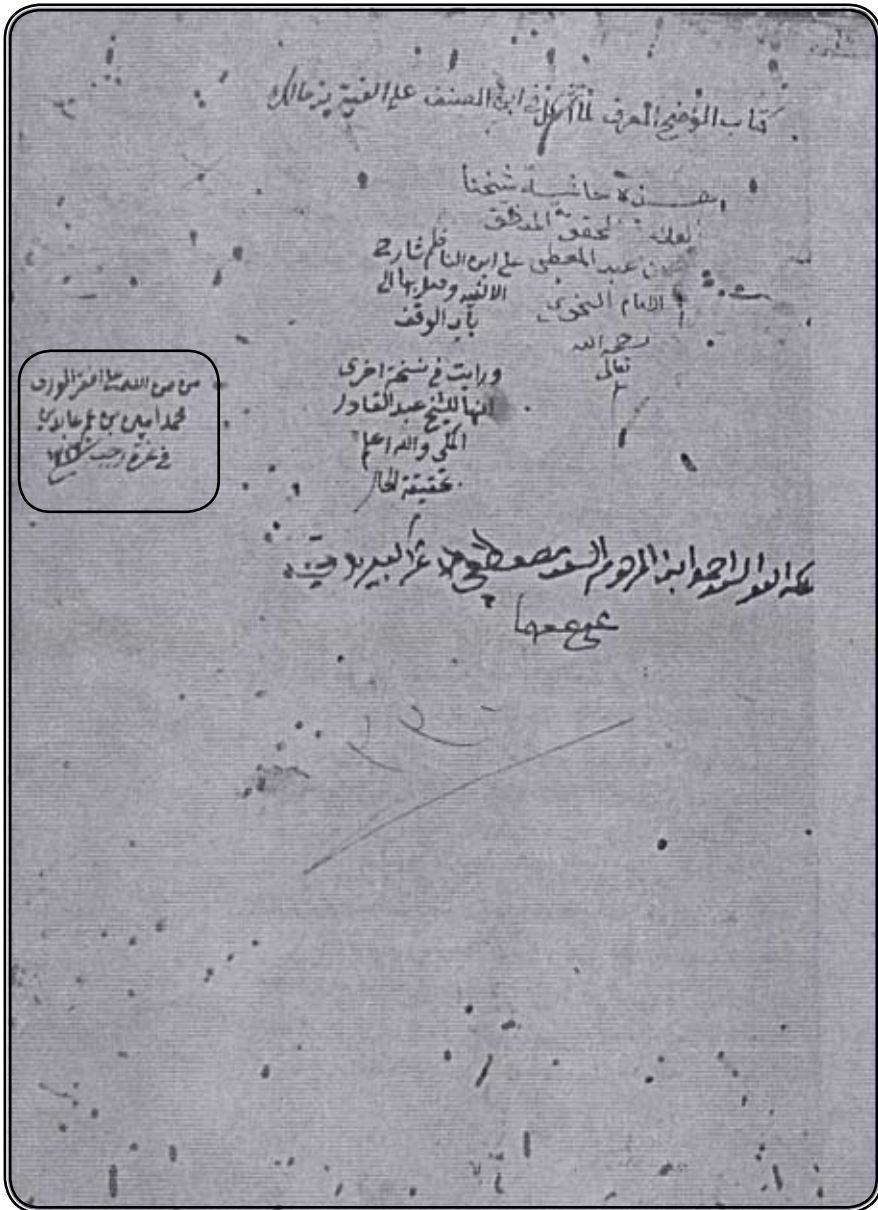 كتاب الموضح المعرف لما أشكل في ابن المصنف على الفية بن مالك
هذه حاشية شيخنا
المحقق المدقق
بن عبد المعطي على ابن الناظم شارح
الالفيه وصل بها الى
باب الوقف
الامام النحوي
رحمه الله
تعالى
ورايت في نسخة اخرى
انها للشيخ عبد القادر
المكي والله اعلم
بحقيقة الحال
من من الله على افقر الورى
محمد امين بن عمر عابدين
في غرة رجب
السيد احمد ابن المرحوم السيد مصطفى
عفي عنهما